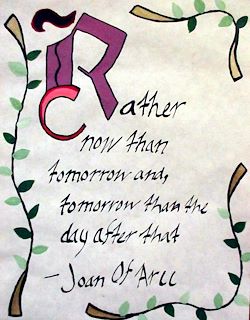 Rather
now than
tomorrow and,
tomorrow than the
day after that
- Joan Of Arcc